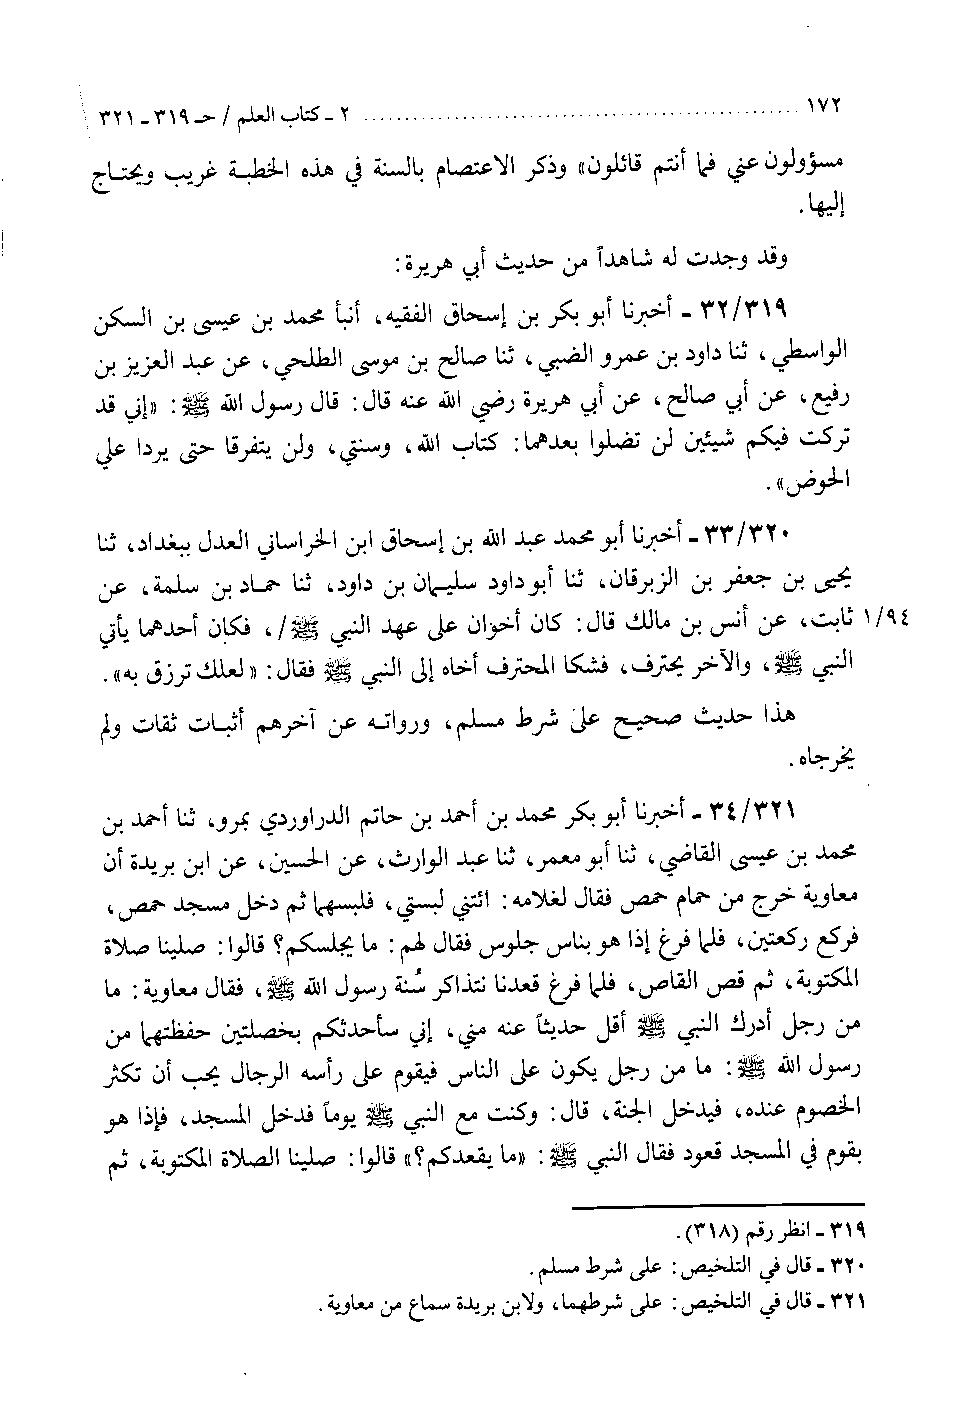 ١٧٢ ........ ٢ - كتاب العلم / حـ ٣١٩ - ٣٢١
مسؤولون عني فما أنتم قائلون» وذكر الاعتصام بالسنة في هذه الخطبة غريب ويحتاج
إليها.
وقد وجدت له شاهداً من حديث أبي هريرة:
٣٢/٣١٩ - أخبرنا أبو بكر بن إسحاق الفقيه، أنبأ محمد بن عيسى بن السكن
الواسطي، ثنا داود بن عمرو الضبي، ثنا صالح بن موسى الطلحي، عن عبد العزيز بن
رفيع، عن أبي صالح، عن أبي هريرة رضي الله عنه قال: قال رسول الله ﷺ: «إني قد
تركت فيكم شيئين لن تضلوا بعدهما: كتاب الله، وسنتي، ولن يتفرقا حتى يردا علي
الحوض».
٣٣/٣٢٠ - أخبرنا أبو محمد عبد الله بن إسحاق ابن الخراساني العدل ببغداد، ثنا
يحيى بن جعفر بن الزبرقان، ثنا أبو داود سليمان بن داود، ثنا حماد بن سلمة، عن
١/٩٤ ثابت، عن أنس بن مالك قال: كان أخوان على عهد النبي ﷺ/، فكان أحدهما يأتي
النبي ﷺ، والآخر يحترف، فشكا المحترف أخاه إلى النبي ﷺ فقال: «لعلك ترزق به».
هذا حديث صحيح على شرط مسلم، ورواته عن آخرهم أثبات ثقات ولم
يخرجاه.
٣٤/٣٢١ - أخبرنا أبو بكر محمد بن أحمد بن حاتم الدراوردي بمرو، ثنا أحمد بن
محمد بن عيسى القاضي، ثنا أبو معمر، ثنا عبد الوارث، عن الحسين، عن ابن بريدة أن
معاوية خرج من حمام حمص فقال لغلامه: ائتني لبستي، فلبسهما ثم دخل مسجد حمص،
فركع ركعتين، فلما فرغ إذا هو بناس جلوس فقال لهم: ما يجلسكم؟ قالوا: صلينا صلاة
المكتوبة، ثم قص القاص، فلما فرغ قعدنا نتذاكر سُنة رسول الله ﷺ، فقال معاوية: ما
من رجل أدرك النبي ﷺ أقل حديثاً عنه مني، إني سأحدثكم بخصلتين حفظتهما من
رسول الله ﷺ: ما من رجل يكون على الناس فيقوم على رأسه الرجال يحب أن تكثر
الخصوم عنده، فيدخل الجنة، قال: وكنت مع النبي ﷺ يوماً فدخل المسجد، فإذا هو
بقوم في المسجد قعود فقال النبي ﷺ: «ما يقعدكم؟» قالوا: صلينا الصلاة المكتوبة، ثم
٣١٩ - انظر رقم (٣١٨).
٣٢٠ - قال في التلخيص: على شرط مسلم.
٣٢١ - قال في التلخيص: على شرطهما، ولابن بريدة سماع من معاوية.